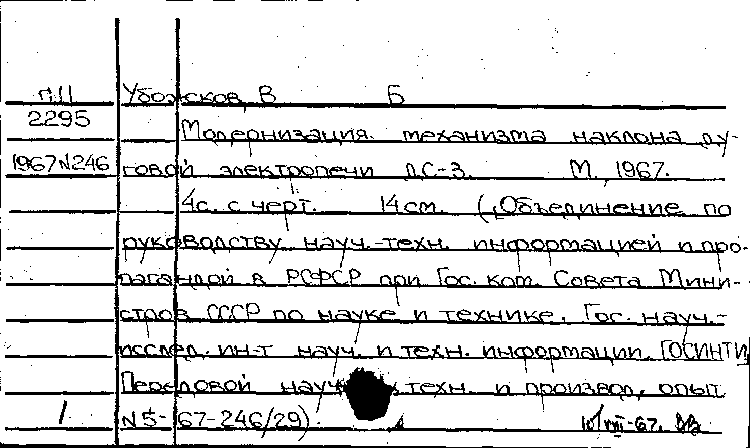 П.П Убожсков, В Б
2295 Модернизация механизма наклона ду-
1967 N246 говой электропечи ДС-3. М., 1967.
4с. с черт. 14см. (Объединение по
руководству науч.-техн. информацией и про-
пагандой в РСФСР при Гос. ком. Совета Мини-
стров СССР по науке и технике. Гос. науч.-
исслед. ин-т науч. и техн. информации. ГОСИНТИ,
Передовой науч техн. и производ, опыт
1 N5-67-246/29).